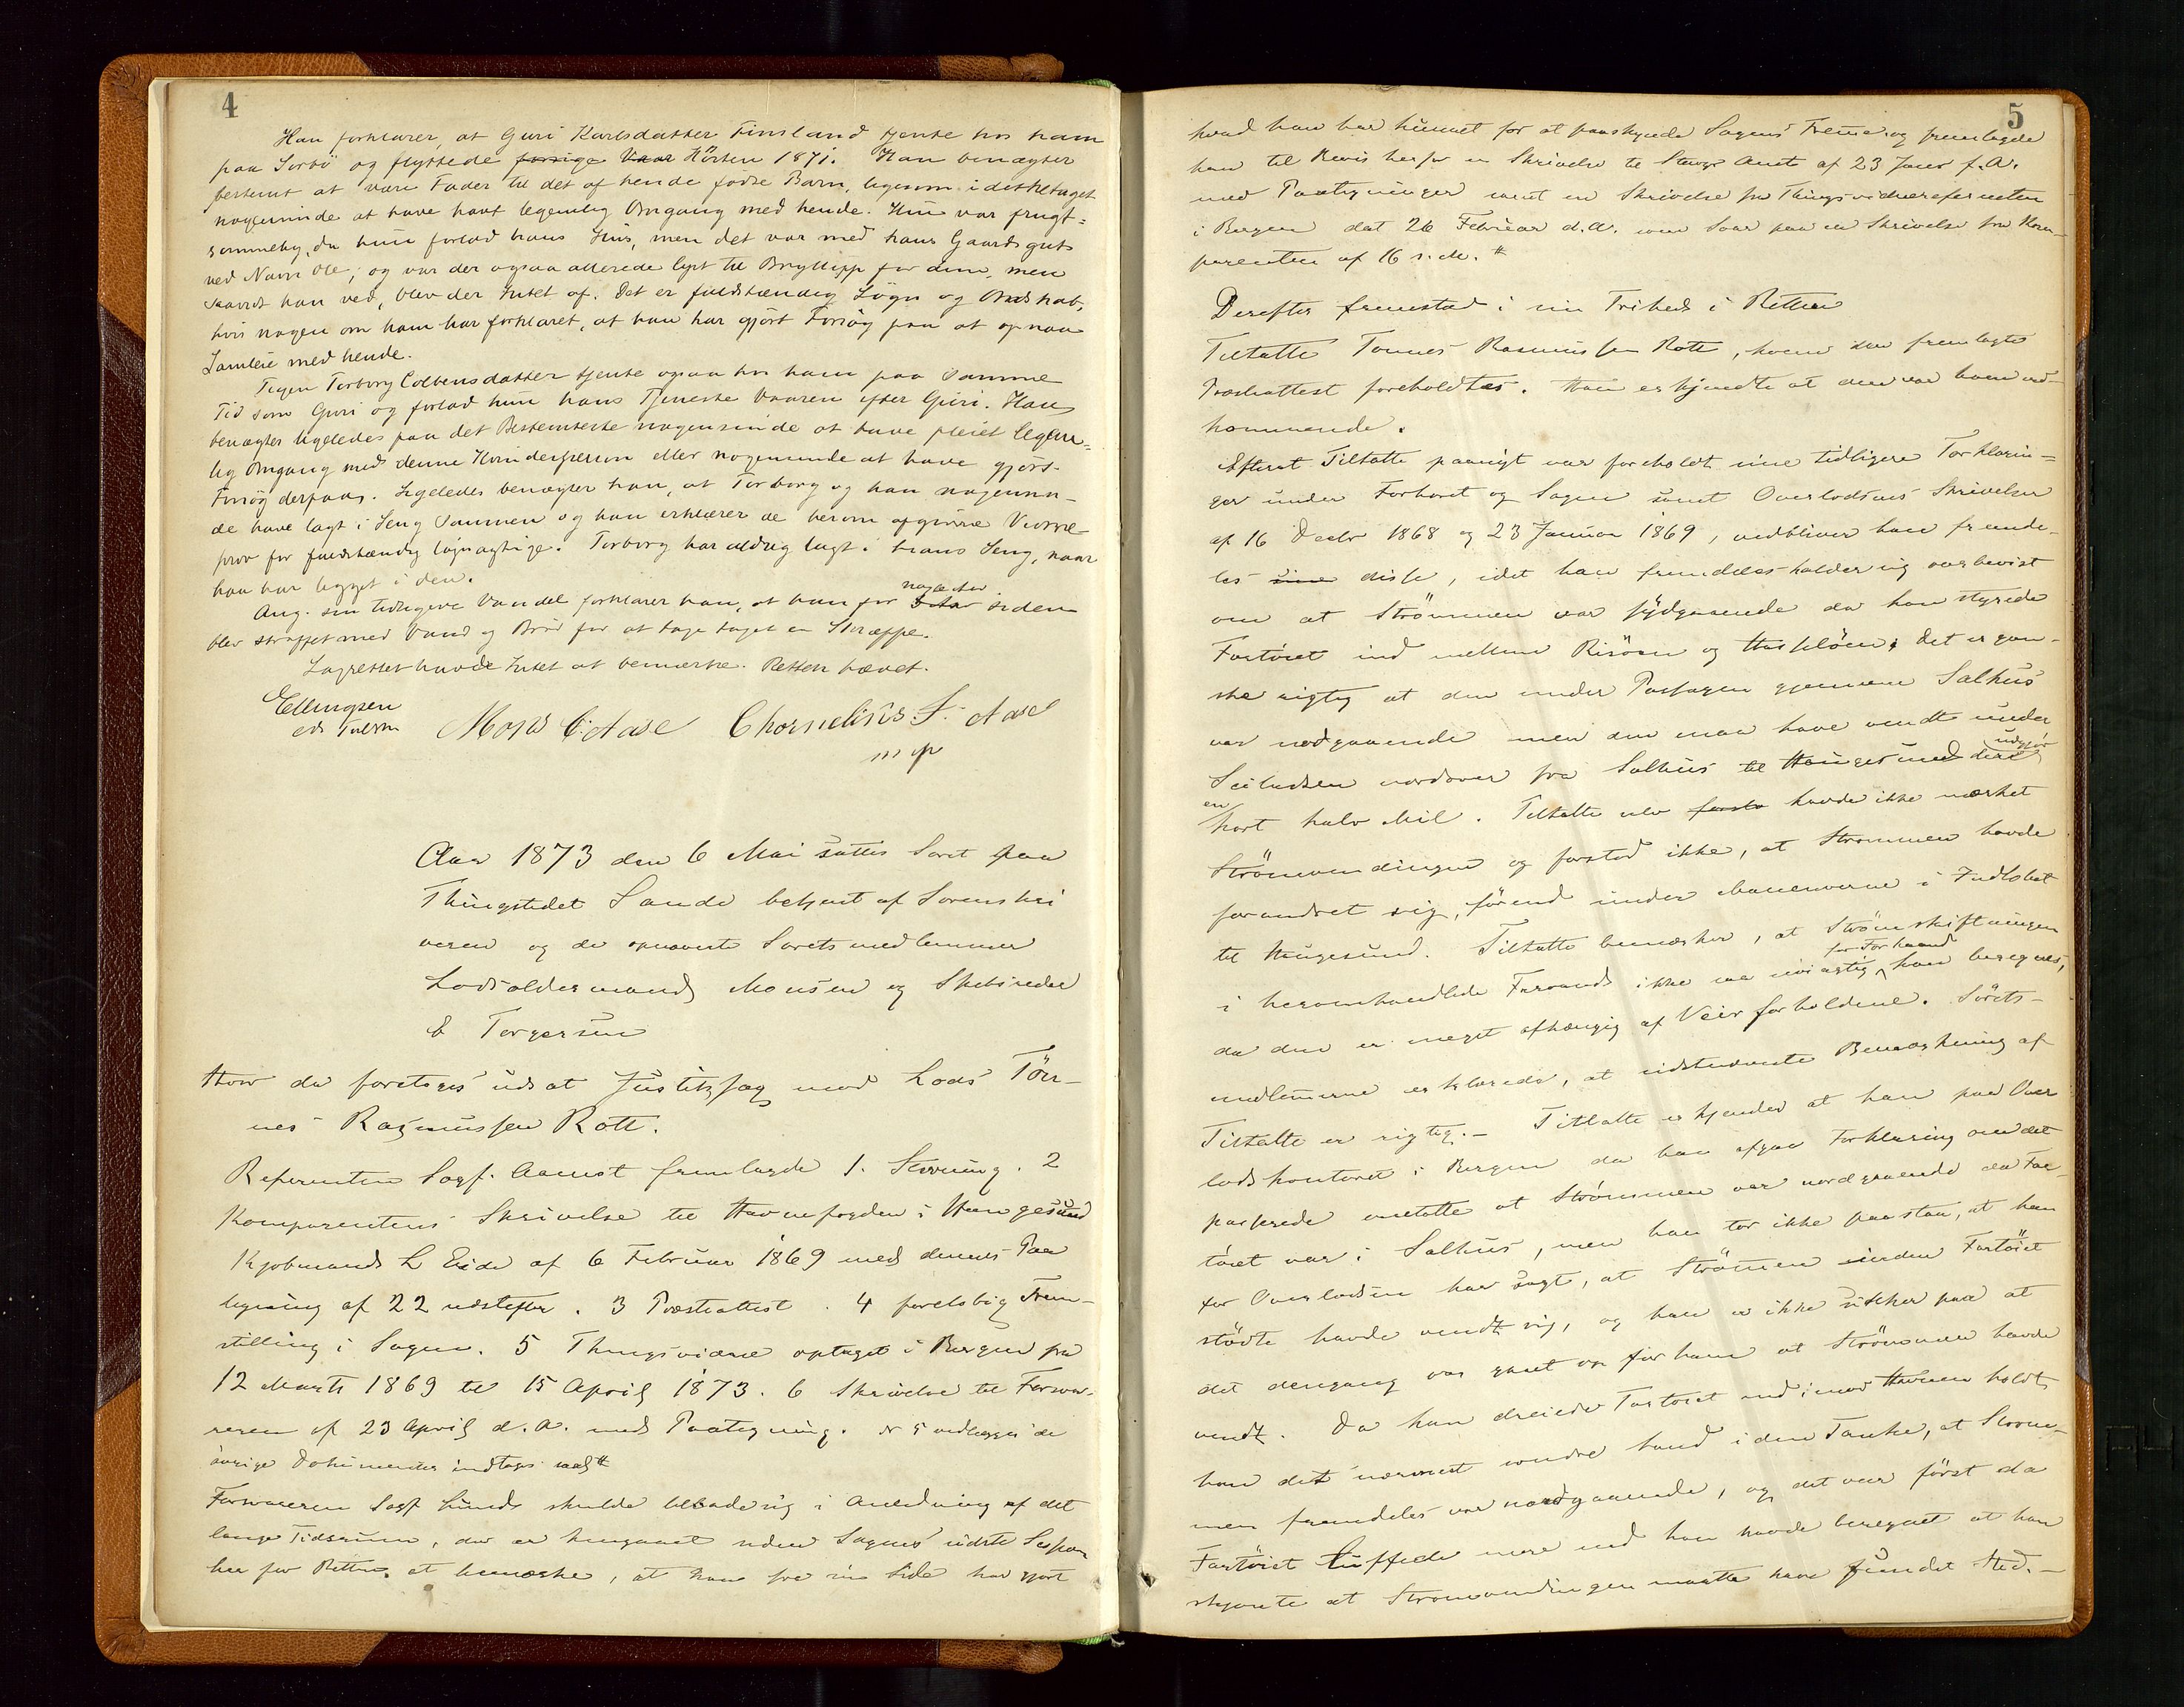 4
Han forklarer, at Guri Karlsdatter Finsland tjente hos ham
paa Sorbö og flyttede forrige Vaar Hösten 1871. Han benægter
bestemt at være Fader til det af hende fødte Barn, ligesom i det hele taget
nogensinde at have havt legemlig Omgang med hende. Hun var frugt-
sommelig, da hun forlod hans Hus, men det var med hans Gaardsgut
ved Navn Ole; og var der ogsaa allerede lyst til Bryllup for dem, men
saavidt han ved, blev der Intet af. Det er fuldstændig Løgn og Ondskab,
hvis nogen om ham har forklaret, at han har gjört Forsøg paa at opnaa
Samleie med hende.
Pigen Torborg Colbensdatter tjente ogsaa hos ham paa samme
Tid som Guri og forlod hun hans Tjeneste Vaaren efter Guri. Han
benægter ligeledes paa det Bestemteste nogensinde at have pleiet legem-
lig Omgang med denne Kvindesperson eller nogensinde at have gjört
Forsøg derpaa. Ligeledes benægter han, at Torborg og han nogensin-
de have lagt i Seng sammen og han erklærer de herom afgivne Vidne-
prov for fuldstændig løgnagtige. Torborg har aldrig lagt i hans Seng, naar
han har ligget i den.
Ang. sin tidligere Vandel forklarer han, at han for nogle Aar siden
blev straffet med Vand og Brød for at have taget en Skræppe.
Lagrettet havde Intet at bemærke. Retten hævet.
Ellingsen
eds Fuldm Mons C. Aase Chornelius S. Aase
m p
Aar 1873 den 6 Mai sattes Soret paa
Thingstedet Sande betjent af Sorenskri
veren og de opnævnte Soretsmedlemmer
Lodsoldermand Monsen og Skibsreder
E Torgersen
Hvor da foretoges udsat Justitssag mod Lods Tön-
nes Rasmussen Rott.
Referenten Sagf. Aanest fremlagde 1. Stevning. 2
Komparentens Skrivelse til Havnefogden i Haugesund
Kjøbmand L Eide af 6 Februar 1869 med dennes Paa
tegning af 22 næstefter. 3 Præsteattest. 4 foreløbig Frem-
stilling i Sagen. 5 Thingsvidne optaget i Bergen fra
12 Marts 1869 til 15 April 1873. 6 Skrivelse til Forsva-
reren af 23 April d. A. med Paategning. No 5 vedlægges de
övrige Dokumenter indtages
Forsvareren Sagf Lund skulde tillade sig i Anledning af det
lange Tidsrum, der er hengaaet siden Sagens sidste
her for Retten at bemærke, at han fra sin Side har gjort
5
hvad han har kunnet for at paaskynde Sagens Fremme og fremlagde
han til Bevis herfor en Skrivelse til Stavgr Amt af 23 Janr f. A.
med Paategninger samt en Skrivelse fra Thingsvidnereferenten
i Bergen dat 26 Februar d. A. som Svar paa en Skrivelse fra Kom-
parenten af 16 s. M.
Derefter fremstod i sin Frihed i Retten
Tiltalte Tonnes Rasmussen Rott, hvem den fremlagte
Præsteattest foreholdtes. Han erkjendte at den var ham ved-
kommende.
Efterat Tiltalte paanyt var foreholdt sine tidligere Forklarin-
ger under Forhøret og Sagen samt Overlodsens Skrivelser
af 16 Decbr 1868 og 23 Januar 1869, vedbliver han fremde-
les sine disse, idet han fremdeles holder sig overbevist
om at Strömmen var sydgaaende da han styrede
Fartöiet ind mellem Risöen og Hasselöen; det er gan-
ske rigtig at den under Passagen gjennem Salhus
var nordgaaende men den maa have vendt under
Seiladsen nordover fra Salhus til Haugesund der udgjør
en kort halv Mil. Tiltalte selv havde ikke mærket
Strömvendingen og forstod ikke, at Strømmen havde
forandret sig, förend under Manøvrerne i Indløbet
til Haugesund. Tiltalte bemærker, at Strömskiftningen
i heromhandlede Farvand ikke saa nöiagtig for Forhaand kan beregnes,
da den er meget afhængig af Veirforholdene. Sörets-
medlemmerne erklærede, at sidstnævnte Bemærkning af
Tiltalte er rigtig. – Tiltalte erkjender at han paa Over
lodskontoret i Bergen da han afgav Forklaring om det
passerede omtalte at Strømmen var nordgaaende da Far-
töiet var i Salhus, men han tør ikke paastaa, at han
for Overlodsen har sagt, at Strömmen inden Fartöiet
stödte havde vendt sig, og han er ikke sikker paa at
det dengang var gaaet op for ham at Strömmen havde
vendt. Da han dreiede Fartoiet ind imod Havnen holdt
han det nærmest søndre Land i den Tanke, at Strøm-
men fremdeles var nordgaaende, og det var först da
Fartöiet luffede mere end han havde beregnet at han
skjønte at Strömvendingen maatte have fundet Sted. –